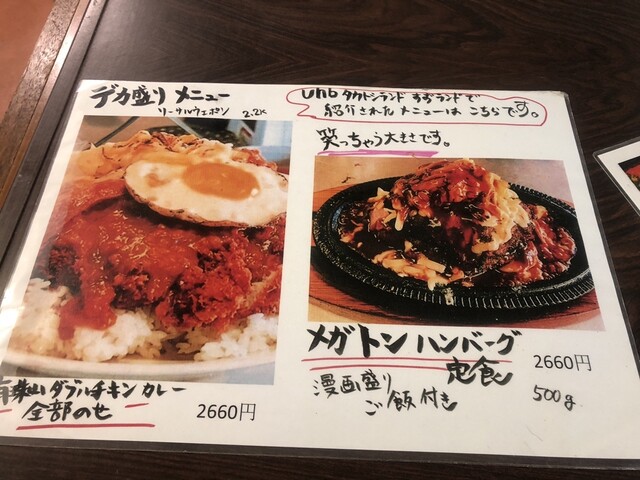 デカ盛りメニュー
リーサルウェポン 2.2K
有珠山ダブルチキンカレー
全部のせ
2660円
uhb タカトシランド すぎランドで
紹介されたメニューは こちらです。
笑っちゃう大きさです。
メガトンハンバーグ
定食
2660円
漫画盛り
ご飯付き
500g